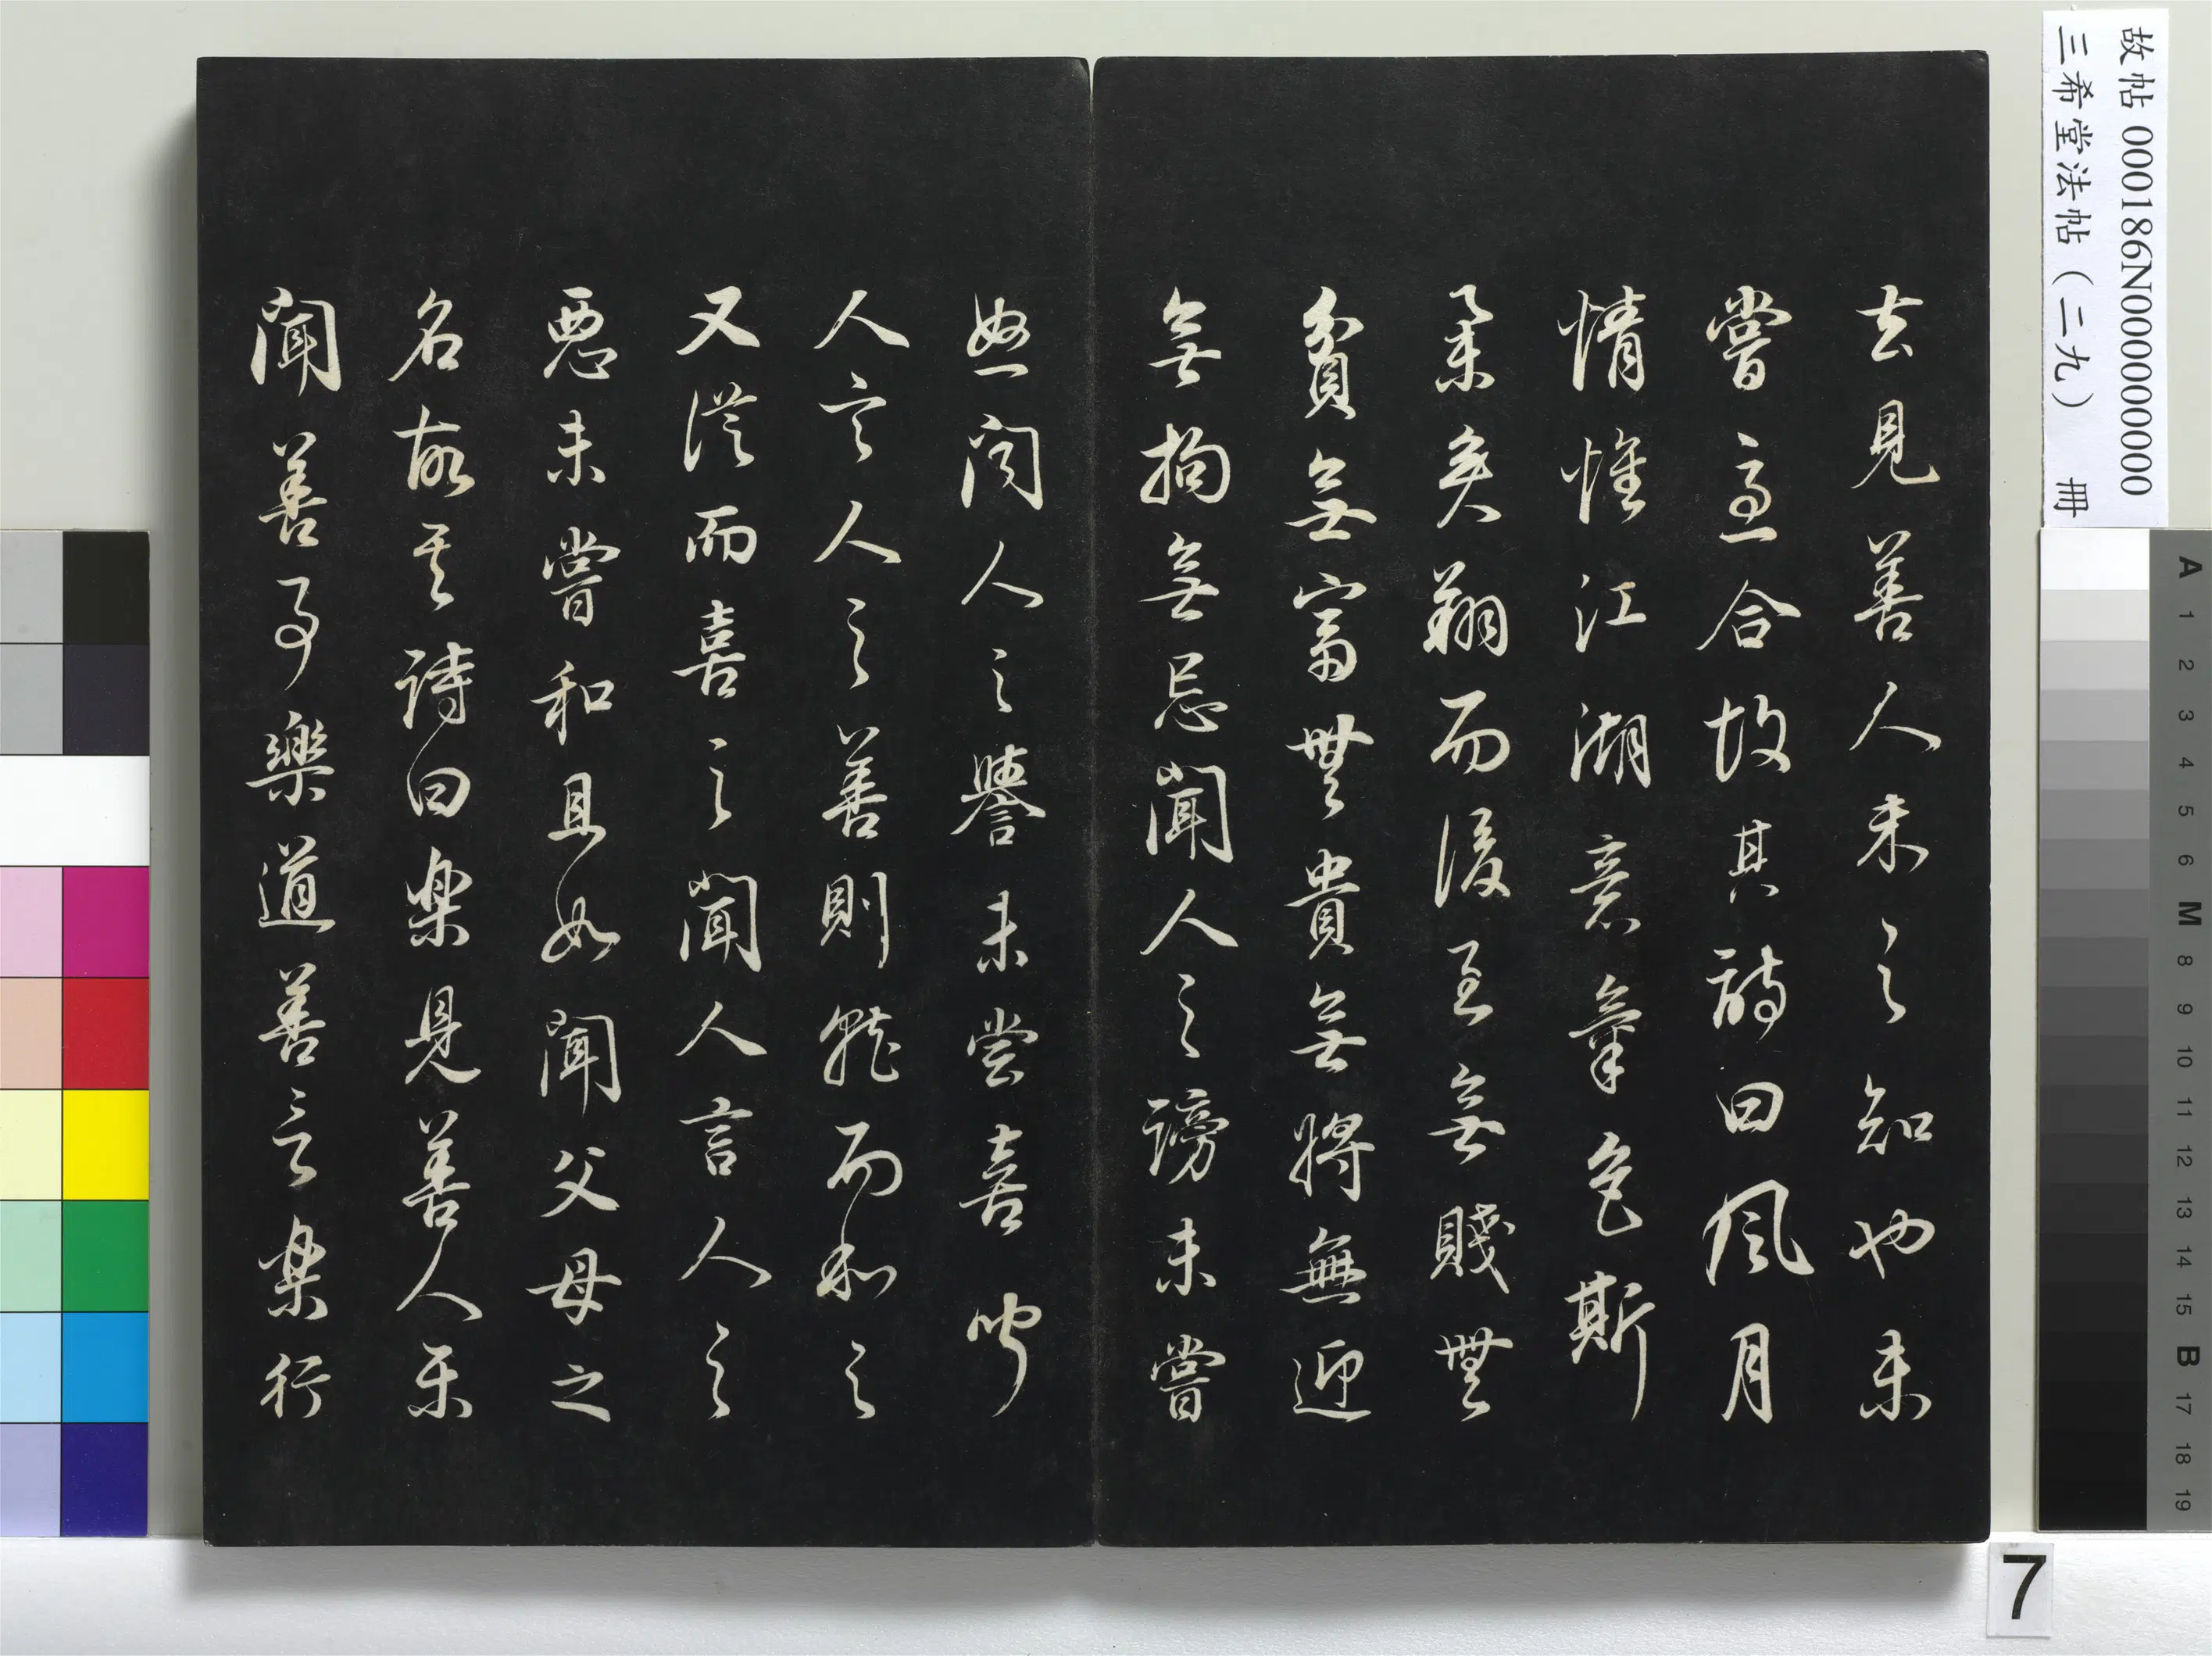 故帖 000186N000000000
三希堂法帖（二九） 冊
去見善人未之知也未
嘗急合故其詩曰風月
情懷江湖意氣色斯
舉矣翔而後至無賤無
貧無富無貴無將無迎
無拘無忌聞人之謗未嘗
怒聞人之譽未嘗喜聞
人言人之善則就而和之
又從而喜之聞人言人之
惡未嘗和且如聞父母之
名故其詩曰樂見善人樂
聞善事樂道善言樂行
A
1
2
3
4
5
6
M
8
9
10
11
12
13
14
15
B
17
18
19
7